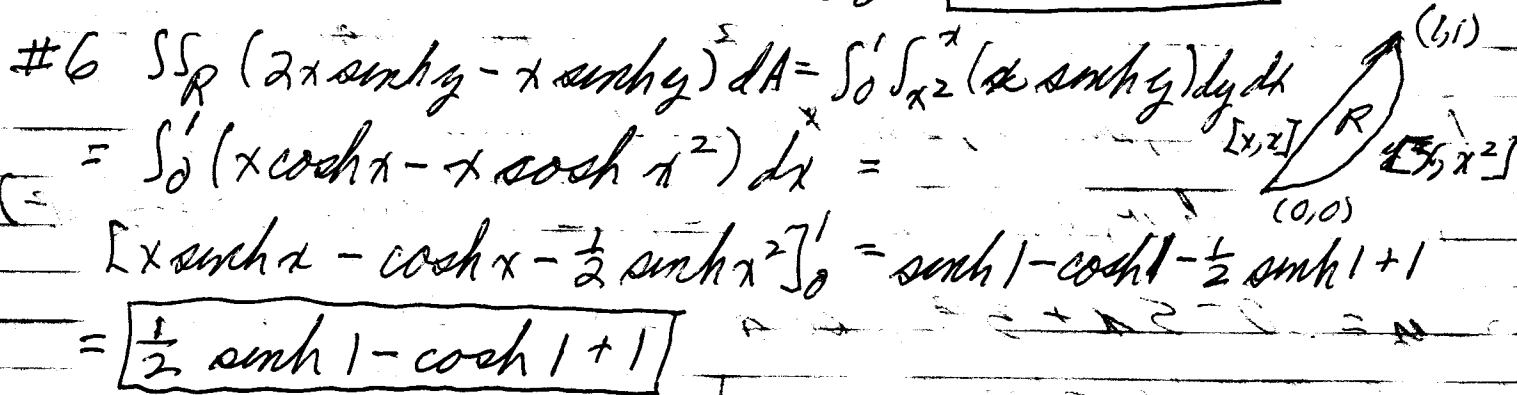 #6 ∬_R (2x sinh y - x sinh y) dA = ∫₀¹ ∫_{x²}^{x} (x sinh y) dy dx
(1,1)
[x,x] R [x, x²]
(0,0)
= ∫₀¹ (x cosh x - x cosh x²) dx =
[x sinh x - cosh x - ½ sinh x²]₀¹ = sinh 1 - cosh 1 - ½ sinh 1 + 1
= ½ sinh 1 - cosh 1 + 1